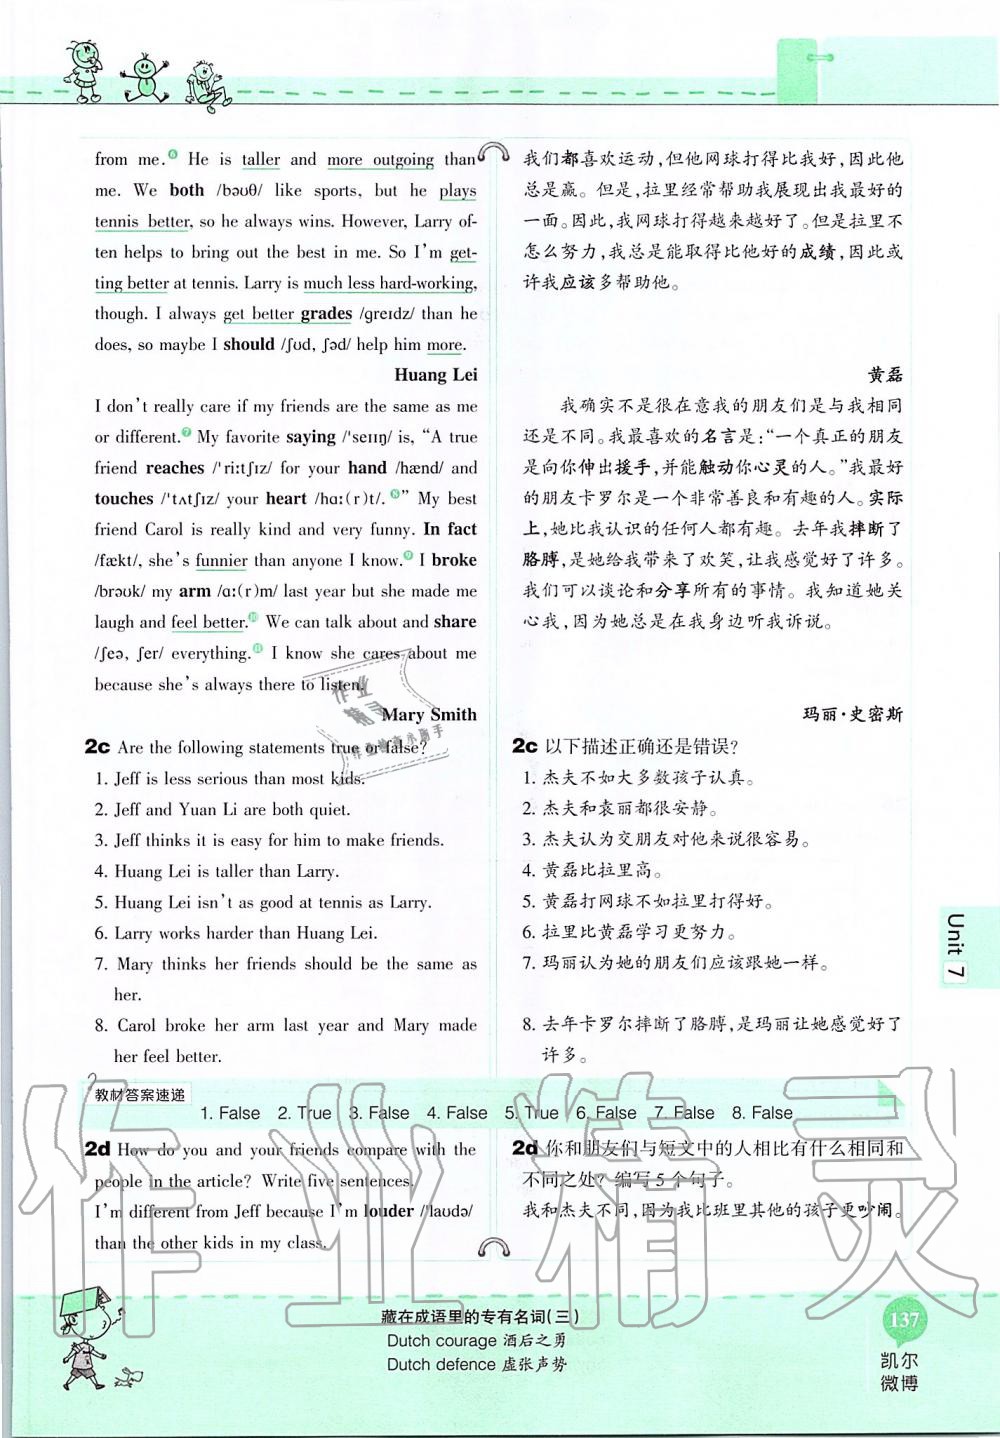 from me.⑥ He is taller and more outgoing than
me. We both /bəʊθ/ like sports, but he plays
tennis better, so he always wins. However, Larry of-
ten helps to bring out the best in me. So I'm get-
ting better at tennis. Larry is much less hard-working,
though. I always get better grades /ɡreɪdz/ than he
does, so maybe I should /ʃʊd, ʃəd/ help him more.
Huang Lei
I don't really care if my friends are the same as me
or different.⑦ My favorite saying /ˈseɪɪŋ/ is, “A true
friend reaches /ˈriːtʃɪz/ for your hand /hænd/ and
touches /ˈtʌtʃɪz/ your heart /hɑː(r)t/.⑧” My best
friend Carol is really kind and very funny. In fact
/fækt/, she's funnier than anyone I know.⑨ I broke
/brəʊk/ my arm /ɑː(r)m/ last year but she made me
laugh and feel better.⑩ We can talk about and share
/ʃeə, ʃer/ everything.⑪ I know she cares about me
because she's always there to listen.
Mary Smith
2c Are the following statements true or false?
1. Jeff is less serious than most kids.
2. Jeff and Yuan Li are both quiet.
3. Jeff thinks it is easy for him to make friends.
4. Huang Lei is taller than Larry.
5. Huang Lei isn't as good at tennis as Larry.
6. Larry works harder than Huang Lei.
7. Mary thinks her friends should be the same as
her.
8. Carol broke her arm last year and Mary made
her feel better.
我们都喜欢运动，但他网球打得比我好，因此他
总是赢。但是，拉里经常帮助我展现出我最好的
一面。因此，我网球打得越来越好了。但是拉里不
怎么努力，我总是能取得比他好的成绩，因此或
许我应该多帮助他。
黄磊
我确实不是很在意我的朋友们是与我相同
还是不同。我最喜欢的名言是：“一个真正的朋友
是向你伸出援手，并能触动你心灵的人。”我最好
的朋友卡罗尔是一个非常善良和有趣的人。实际
上，她比我认识的任何人都有趣。去年我摔断了
胳膊，是她给我带来了欢笑，让我感觉好了许多。
我们可以谈论和分享所有的事情。我知道她关
心我，因为她总是在我身边听我诉说。
玛丽·史密斯
2c 以下描述正确还是错误？
1. 杰夫不如大多数孩子认真。
2. 杰夫和袁丽都很安静。
3. 杰夫认为交朋友对他来说很容易。
4. 黄磊比拉里高。
5. 黄磊打网球不如拉里打得好。
6. 拉里比黄磊学习更努力。
7. 玛丽认为她的朋友们应该跟她一样。
8. 去年卡罗尔摔断了胳膊，是玛丽让她感觉好了
许多。
教材答案速递
1. False 2. True 3. False 4. False 5. True 6. False 7. False 8. False
2d How do you and your friends compare with the
people in the article? Write five sentences.
I'm different from Jeff because I'm louder /ˈlaʊdə/
than the other kids in my class.
2d 你和朋友们与短文中的人相比有什么相同和
不同之处？编写5个句子。
我和杰夫不同，因为我比班里其他的孩子更吵闹。
Unit 7
藏在成语里的专有名词（三）
Dutch courage 酒后之勇
Dutch defence 虚张声势
137
凯尔
微博
作业精灵